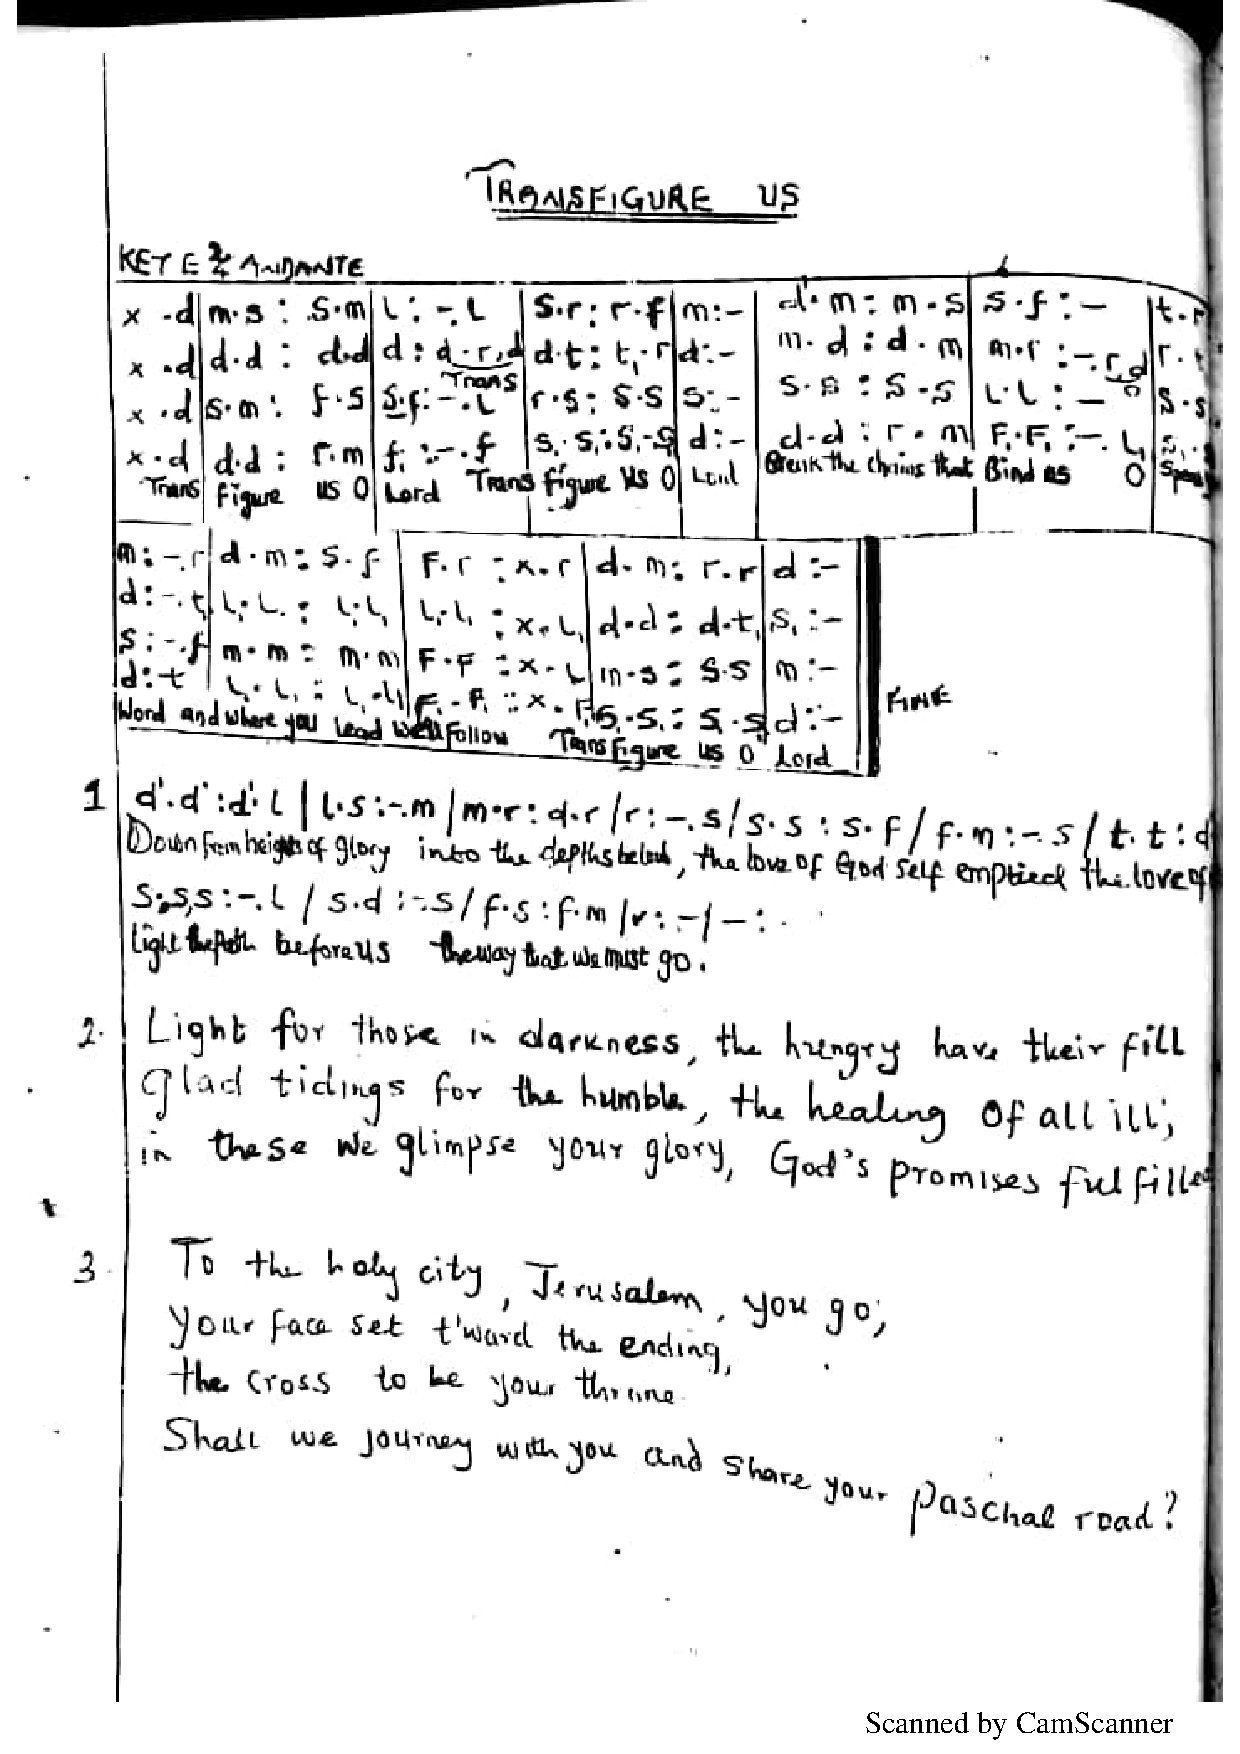 TRANSFIGURE US
KEY E 2/4 ANDANTE
x .d|m.s : s.m|l : -.l|s.r : r.f|m:-|d.m : m.s|s.f :-|t.r
x .d|d.d : d.d|d : d.r,d|d.t : t,.r|d:-|m.d : d.m|m.r :-.r,d|r.t
Trans O
x .d|s.m : f.s|s.f:-.l|r.s : s.s|s:-|s.s : s.s|l.l :-|s.s
x.d|d.d : r.m|f, :-.f|s,.s, : s,.s,|d:-|d.d : r.m|F,.F, :-.l,|s,.s
Trans figure us O Lord Trans figure us O Lord Break the chains that Bind us O Speak
m:-.r|d.m : s.f|F.r : x.r|d.m : r.r|d:-
d:-.t,|l,.l, : l,.l,|l,.l, : x.l,|d.d : d.t,|s, :-
s:-.f|m.m : m.m|F.F : x.l|m.s : s.s|m:-
d:t|l,.l, : l,.l,|F,.F, : x.F,|s,.s, : s,.s,|d:-
Word and where you lead we'll Follow Trans figure us O Lord
FINE
1 d'.d' : d'.l | l.s :-.m / m.r : d.r / r :-.s / s.s : s.f / f.m :-.s / t.t : d
Down from heights of glory into the depths below, the love of God self emptied the love of
s.s,s :-.l / s.d :-.s / f.s : f.m / r :-/-: .
Light the path before us the way that we must go.
2. Light for those in darkness, the hungry have their fill
Glad tidings for the humble, the healing of all ill;
in these we glimpse your glory, God's promises fulfilled
3. To the holy city, Jerusalem, you go;
Your face set t'ward the ending,
the cross to be your throne.
Shall we journey with you and share your paschal road?
Scanned by CamScanner